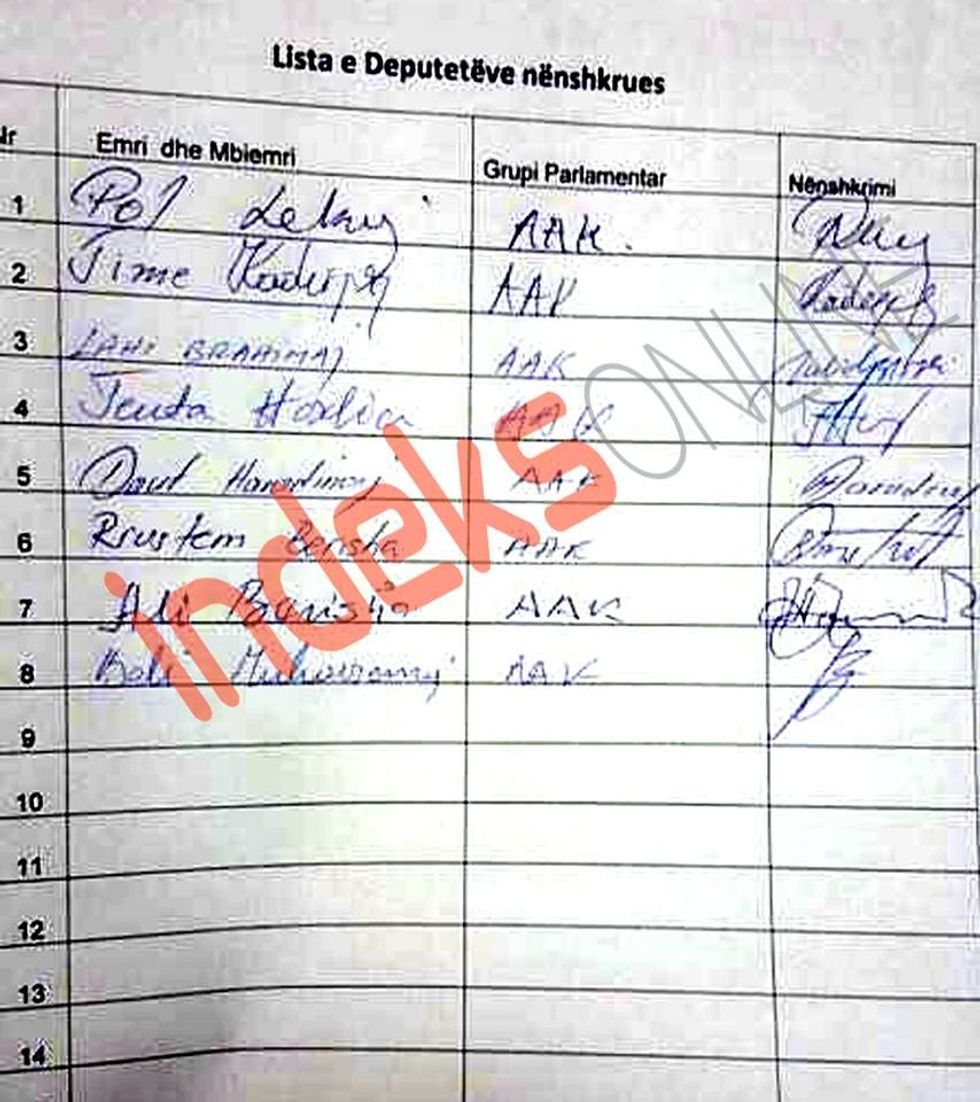 Lista e Deputetëve nënshkrues
Nr Emri dhe Mbiemri Grupi Parlamentar Nënshkrimi
1 Pol Lekaj AAK.
2 Time Kadrijaj AAK
3 LAHI BRAHIMAJ AAK
4 Teuta Haxhiu AAK
5 Daut Haradinaj AAK
6 Rrustem Berisha AAK
7 Ali Berisha AAK
8 Bali Muharremaj AAK
9
10
11
12
13
14
indeks ONLINE